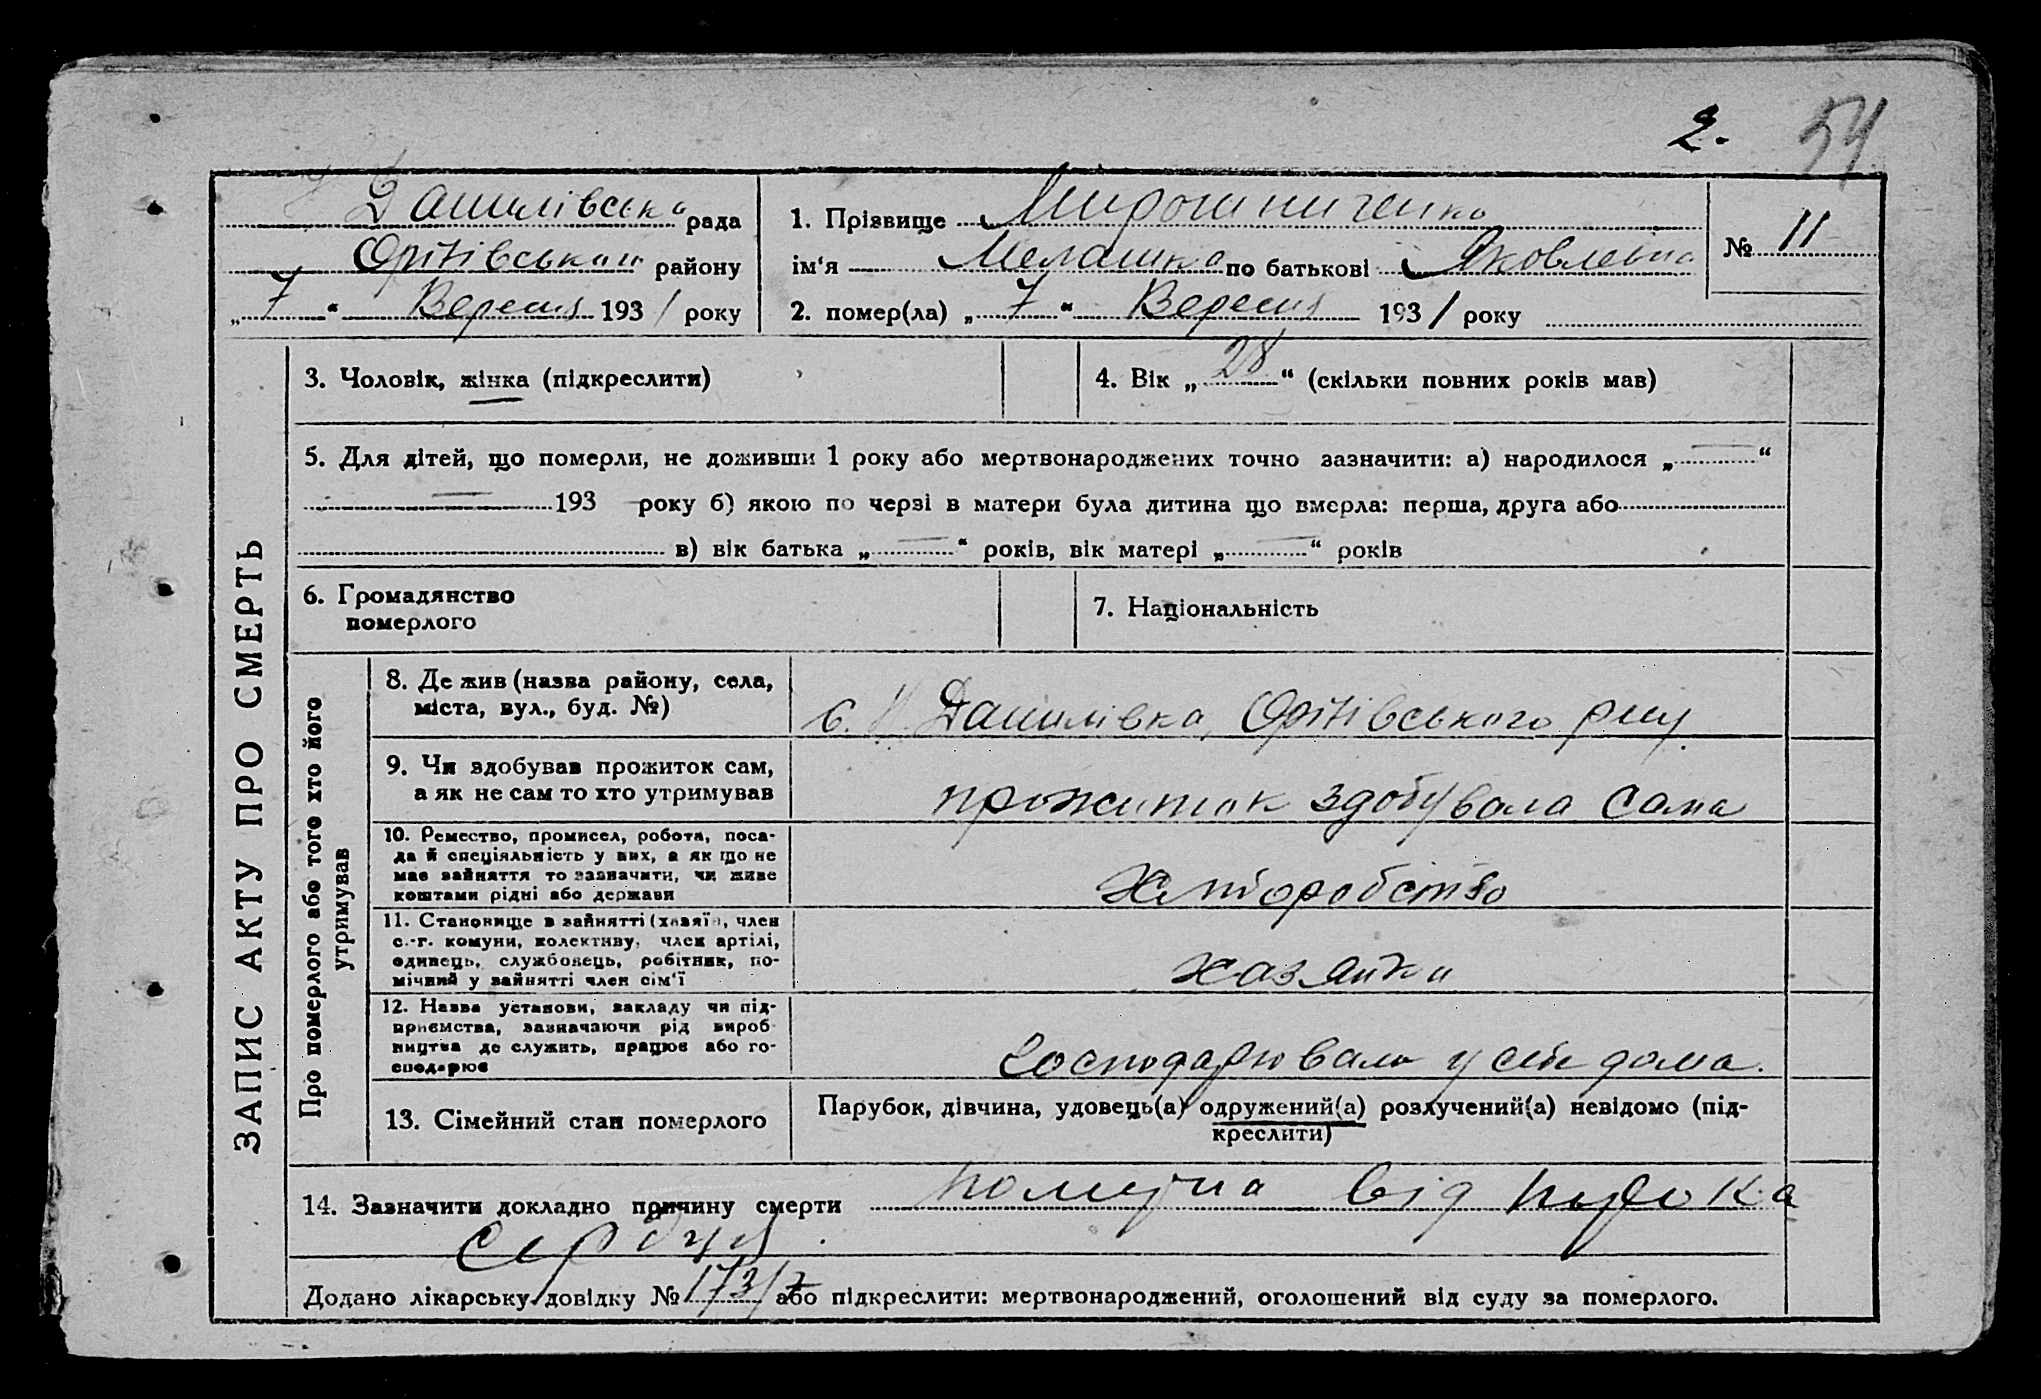 2. 54
Данилівська рада
Оріхівського району
„ 7 “ Вересня 1931 року
1. Прізвище Мирошниченко
ім‘я Мелашка по батькові Яковлевна
2. помер(ла) „ 7 “ Вересня 1931 року
№ 11
ЗАПИС АКТУ ПРО СМЕРТЬ
3. Чоловік, жінка (підкреслити)
4. Вік „ 28 “ (скільки повних років мав)
5. Для дітей, що померли, не доживши 1 року або мертвонароджених точно зазначити: а) народилося „ — “
— 193 — року б) якою по черзі в матери була дитина що вмерла: перша, друга або
в) вік батька „ — “ років, вік матері „ — “ років
6. Громадянство
померлого
7. Національність
Про померлого або того хто його
утримував
8. Де жив (назва району, села,
міста, вул., буд. №)
с. Данилівка, Оріхівського р-ну
9. Чи здобував прожиток сам,
а як не сам то хто утримував
прожиток здобувала сама
10. Ремество, промисел, робота, поса-
да й спеціяльність у них, а як що не
має зайняття то зазначити, чи живе
коштами рідні або держави
хліборобство
11. Становище в зайнятті (хазяїн, член
с.-г. комуни, колективу, член артілі,
одинець, службовець, робітник, по-
мічний у зайнятті член сім‘ї
хазяйка
12. Назва установи, закладу чи під-
приємства, зазначаючи рід вироб
ництва де служить, працює або го-
сподарює
господарювала у себе дома.
13. Сімейний стан померлого
Парубок, дівчина, удовець(а) одружений(а) розлучений(а) невідомо (під-
креслити)
14. Зазначити докладно причину смерти померла від порока
сердця.
Додано лікарську довідку № 173/7 або підкреслити: мертвонароджений, оголошений від суду за померлого.